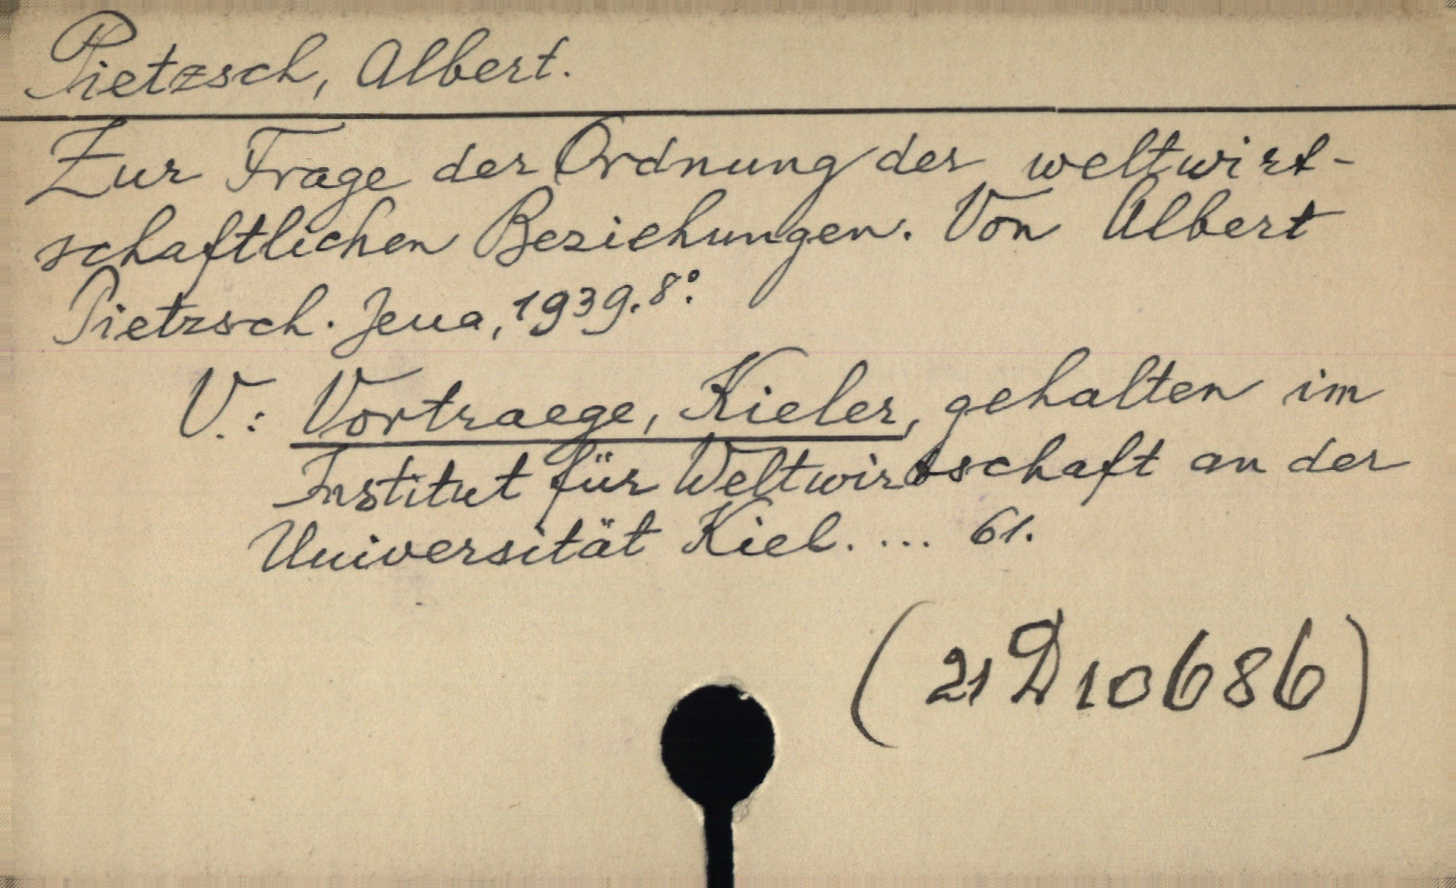 Pietzsch, Albert.
Zur Frage der Ordnung der weltwirt-
schaftlichen Beziehungen. Von Albert
Pietzsch. Jena, 1939. 8°.
V.: Vortraege, Kieler, gehalten im
Institut für Weltwirtschaft an der
Universität Kiel. ... 61.
(21 D 10686)